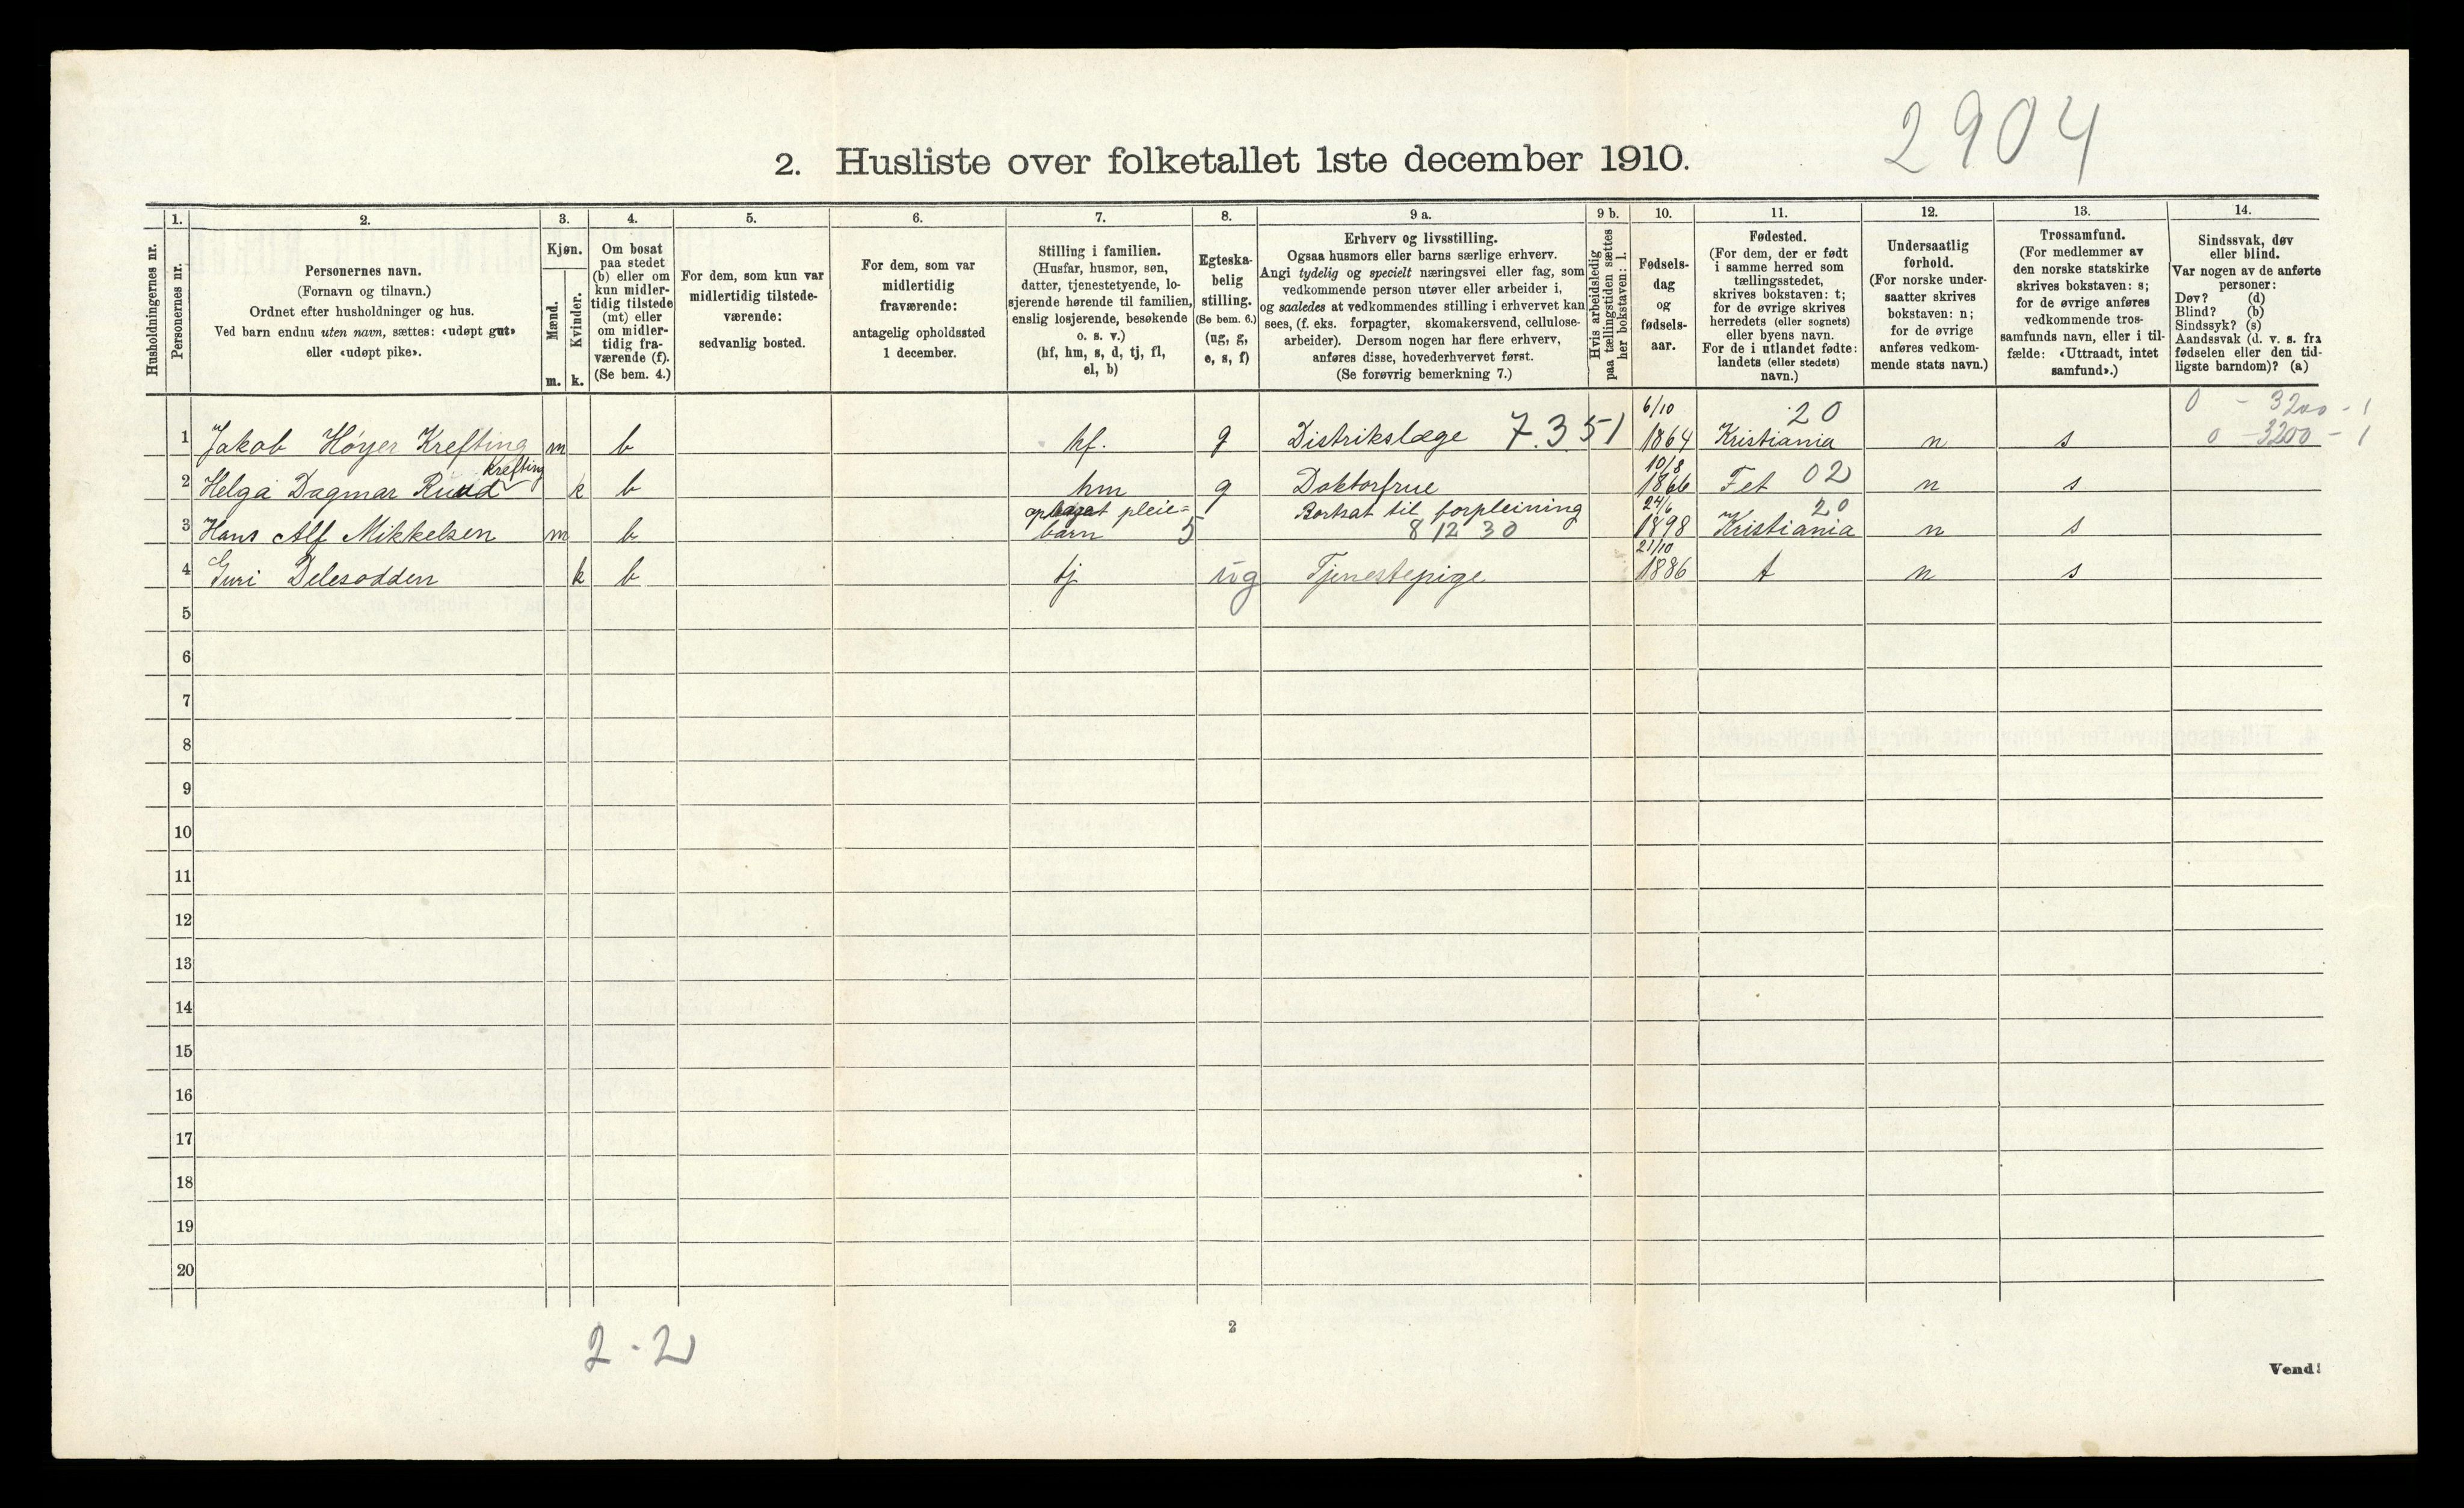 2904
2. Husliste over folketallet 1ste december 1910.
Husholdningernes nr.
1.
Personernes nr.
2.
Personernes navn.
(Fornavn og tilnavn.)
Ordnet efter husholdninger og hus.
Ved barn endnu uten navn, sættes: «udøpt gut»
eller «udøpt pike».
3.
Kjøn.
Mænd.
Kvinder.
m. k.
4.
Om bosat
paa stedet
(b) eller om
kun midler-
tidig tilstede
(mt) eller
om midler-
tidig fra-
værende (f).
(Se bem. 4.)
5.
For dem, som kun var
midlertidig tilstede-
værende:
sedvanlig bosted.
6.
For dem, som var
midlertidig
fraværende:
antagelig opholdssted
1 december.
7.
Stilling i familien.
(Husfar, husmor, søn,
datter, tjenestetyende, lo-
sjerende hørende til familien,
enslig losjerende, besøkende
o. s. v.)
(hf, hm, s, d, tj, fl,
el, b)
8.
Egteska-
belig
stilling.
(Se bem. 6.)
(ug, g,
e, s, f)
9 a.
Erhverv og livsstilling.
Ogsaa husmors eller barns særlige erhverv.
Angi tydelig og specielt næringsvei eller fag, som
vedkommende person utøver eller arbeider i,
og saaledes at vedkommendes stilling i erhvervet kan
sees, (f. eks. forpagter, skomakersvend, cellulose-
arbeider). Dersom nogen har flere erhverv,
anføres disse, hovederhvervet først.
(Se forøvrig bemerkning 7.)
9 b.
Hvis arbeidsledig
paa tællingstiden sættes
her bokstaven: l.
10.
Fødsels-
dag
og
fødsels-
aar.
11.
Fødested.
(For dem, der er født
i samme herred som
tællingsstedet,
skrives bokstaven: t;
for de øvrige skrives
herredets (eller sognets)
eller byens navn.
For de i utlandet fødte:
landets (eller stedets)
navn.)
12.
Undersaatlig
forhold.
(For norske under-
saatter skrives
bokstaven: n;
for de øvrige
anføres vedkom-
mende stats navn.)
13.
Trossamfund.
(For medlemmer av
den norske statskirke
skrives bokstaven: s;
for de øvrige anføres
vedkommende tros-
samfunds navn, eller i til-
fælde: «Uttraadt, intet
samfund».)
14.
Sindssvak, døv
eller blind.
Var nogen av de anførte
personer:
Døv? (d)
Blind? (b)
Sindssyk? (s)
Aandssvak (d. v. s. fra
fødselen eller den tid-
ligste barndom)? (a)
6/10 20 0 - 3200 - 1
1 Jakob Høyer Krefting m b hf. g Distrikslæge 7.351 1864 Kristiania n s 0 - 3200 - 1
Krefting 10/8
2 Helga Dagmar Ruud k b hm g Doktorfrue 1866 Fet 02 n s
pleie= Bortsat til forpleining 24/6 20
3 Hans Alf Mikkelsen m b barn 5 8 12 30 1898 Kristiania n s
21/10
4 Guri Delesodden k b tj ug Tjenestepige 1886 t n s
5
6
7
8
9
10
11
12
13
14
15
16
17
18
19
20
2 - 2
2
Vend!